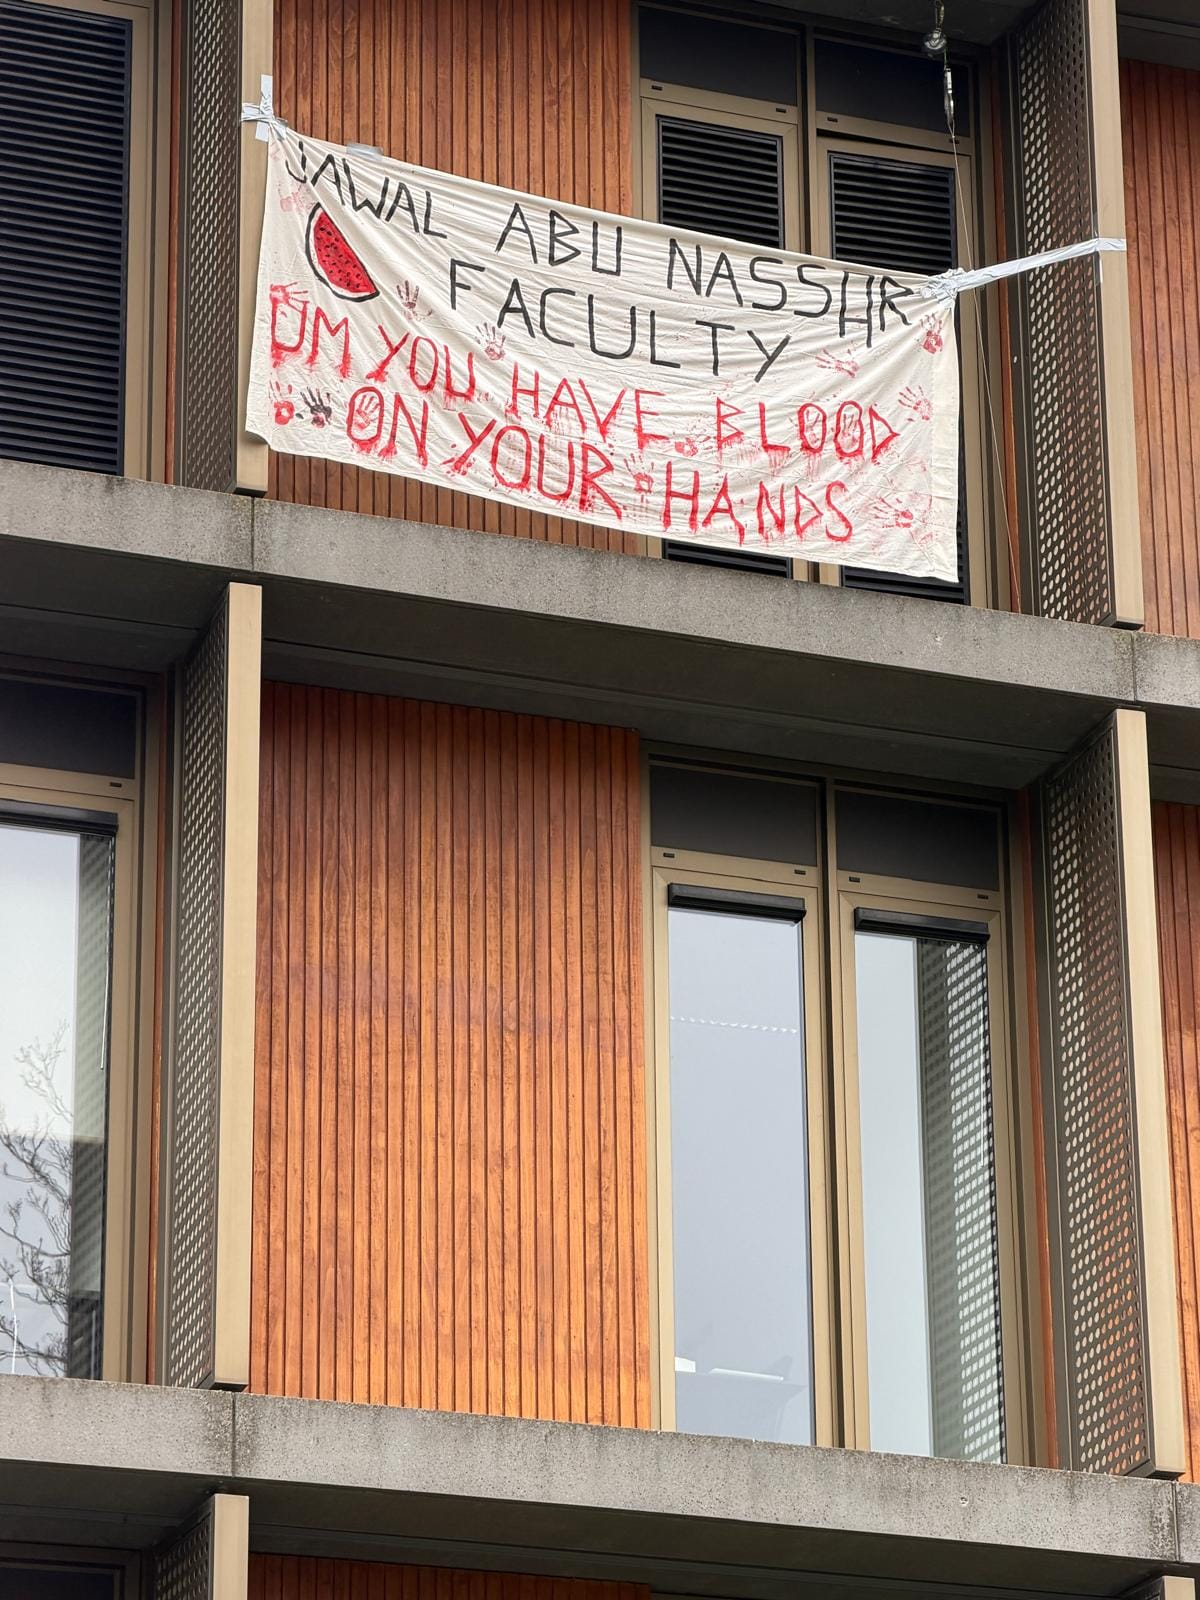 JAWAL ABU NASSIIR
FACULTY
UM YOU HAVE BLOOD
ON YOUR HANDS